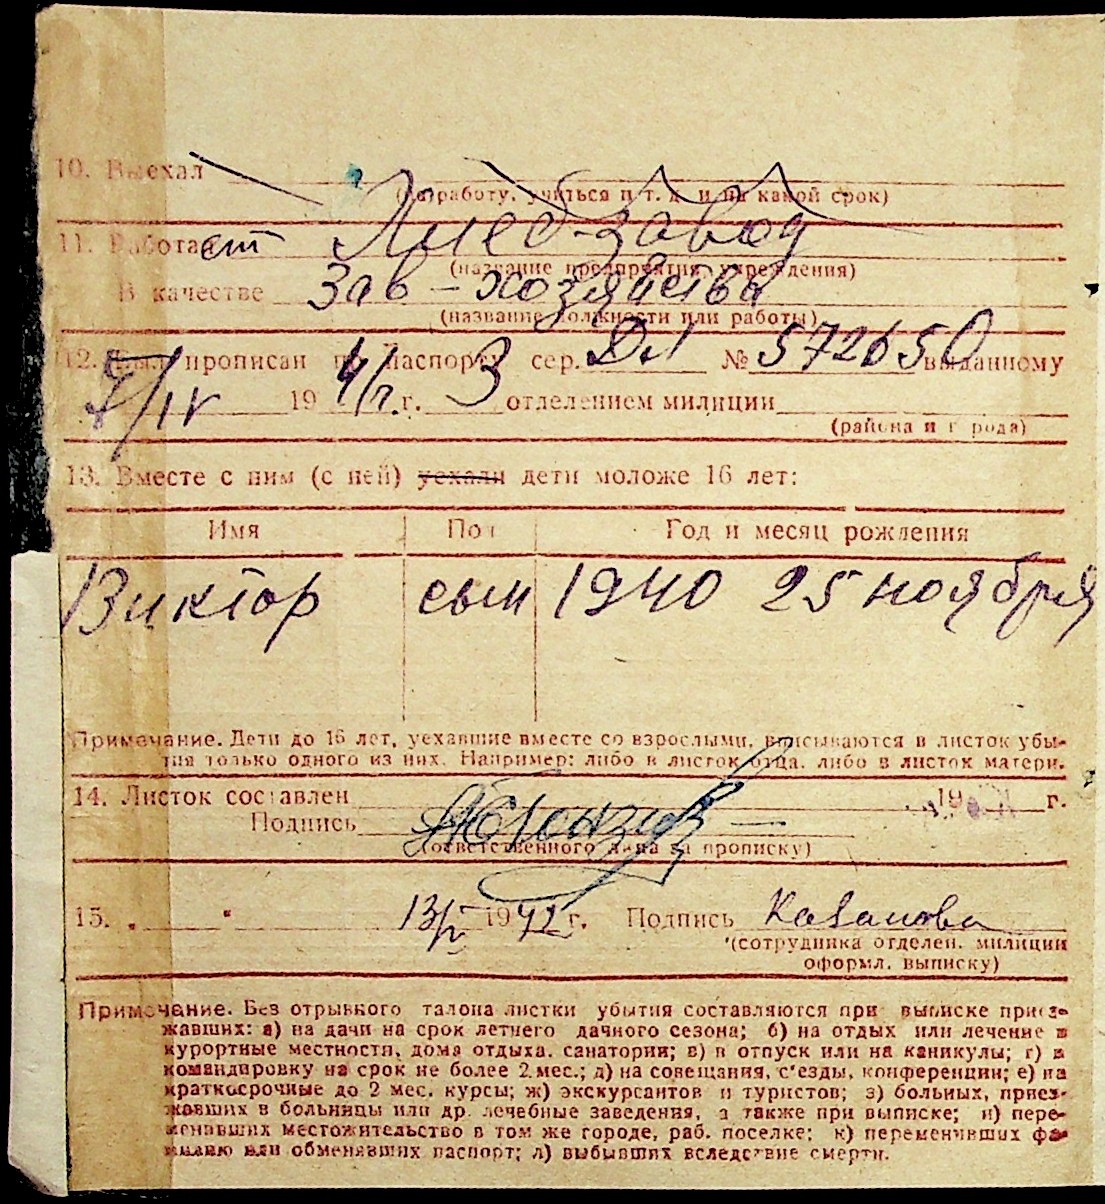 10. Выехал
(на работу, учиться и т. д. и на какой срок)
11. Работает Хлеб-завод
(название предприятия, учреждения)
В качестве Зав-хозяйства
(название должности или работы)
12. Был прописан по паспорту сер. № 572650 выданному
19 г. 3 отделением милиции
(района и города)
13. Вместе с ним (с ней) уехали дети моложе 16 лет:
Имя Пол Год и месяц рождения
Виктор сын 1940 25 ноября
Примечание. Дети до 16 лет, уехавшие вместе со взрослыми, вписываются в листок убы-
тия только одного из них. Например: либо в листок отца, либо в листок матери.
14. Листок составлен 19 г.
Подпись
(ответственного лица за прописку)
15. „ “ 13/V 1942 г. Подпись Казакова
(сотрудника отделен. милиции
оформл. выписку)
Примечание. Без отрывного талона листки убытия составляются при выписке приез-
жавших: а) на дачи на срок летнего дачного сезона; б) на отдых или лечение в
курортные местности, дома отдыха, санатории; в) в отпуск или на каникулы; г) в
командировку на срок не более 2 мес.; д) на совещания, с'езды, конференции; е) на
краткосрочные до 2 мес. курсы; ж) экскурсантов и туристов; з) больных, приез-
жавших в больницы или др. лечебные заведения, а также при выписке; и) пере-
менивших местожительство в том же городе, раб. поселке; к) переменивших фа-
милию или обменявших паспорт; л) выбывших вследствие смерти.